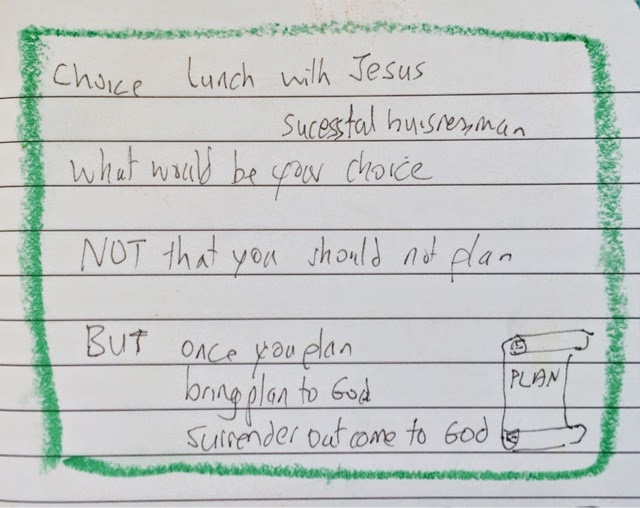 Choice lunch with Jesus
sucesstal buisnessman
What would be your choice
NOT that you should not plan
BUT once you plan
bring plan to God
PLAN
surrender outcome to God